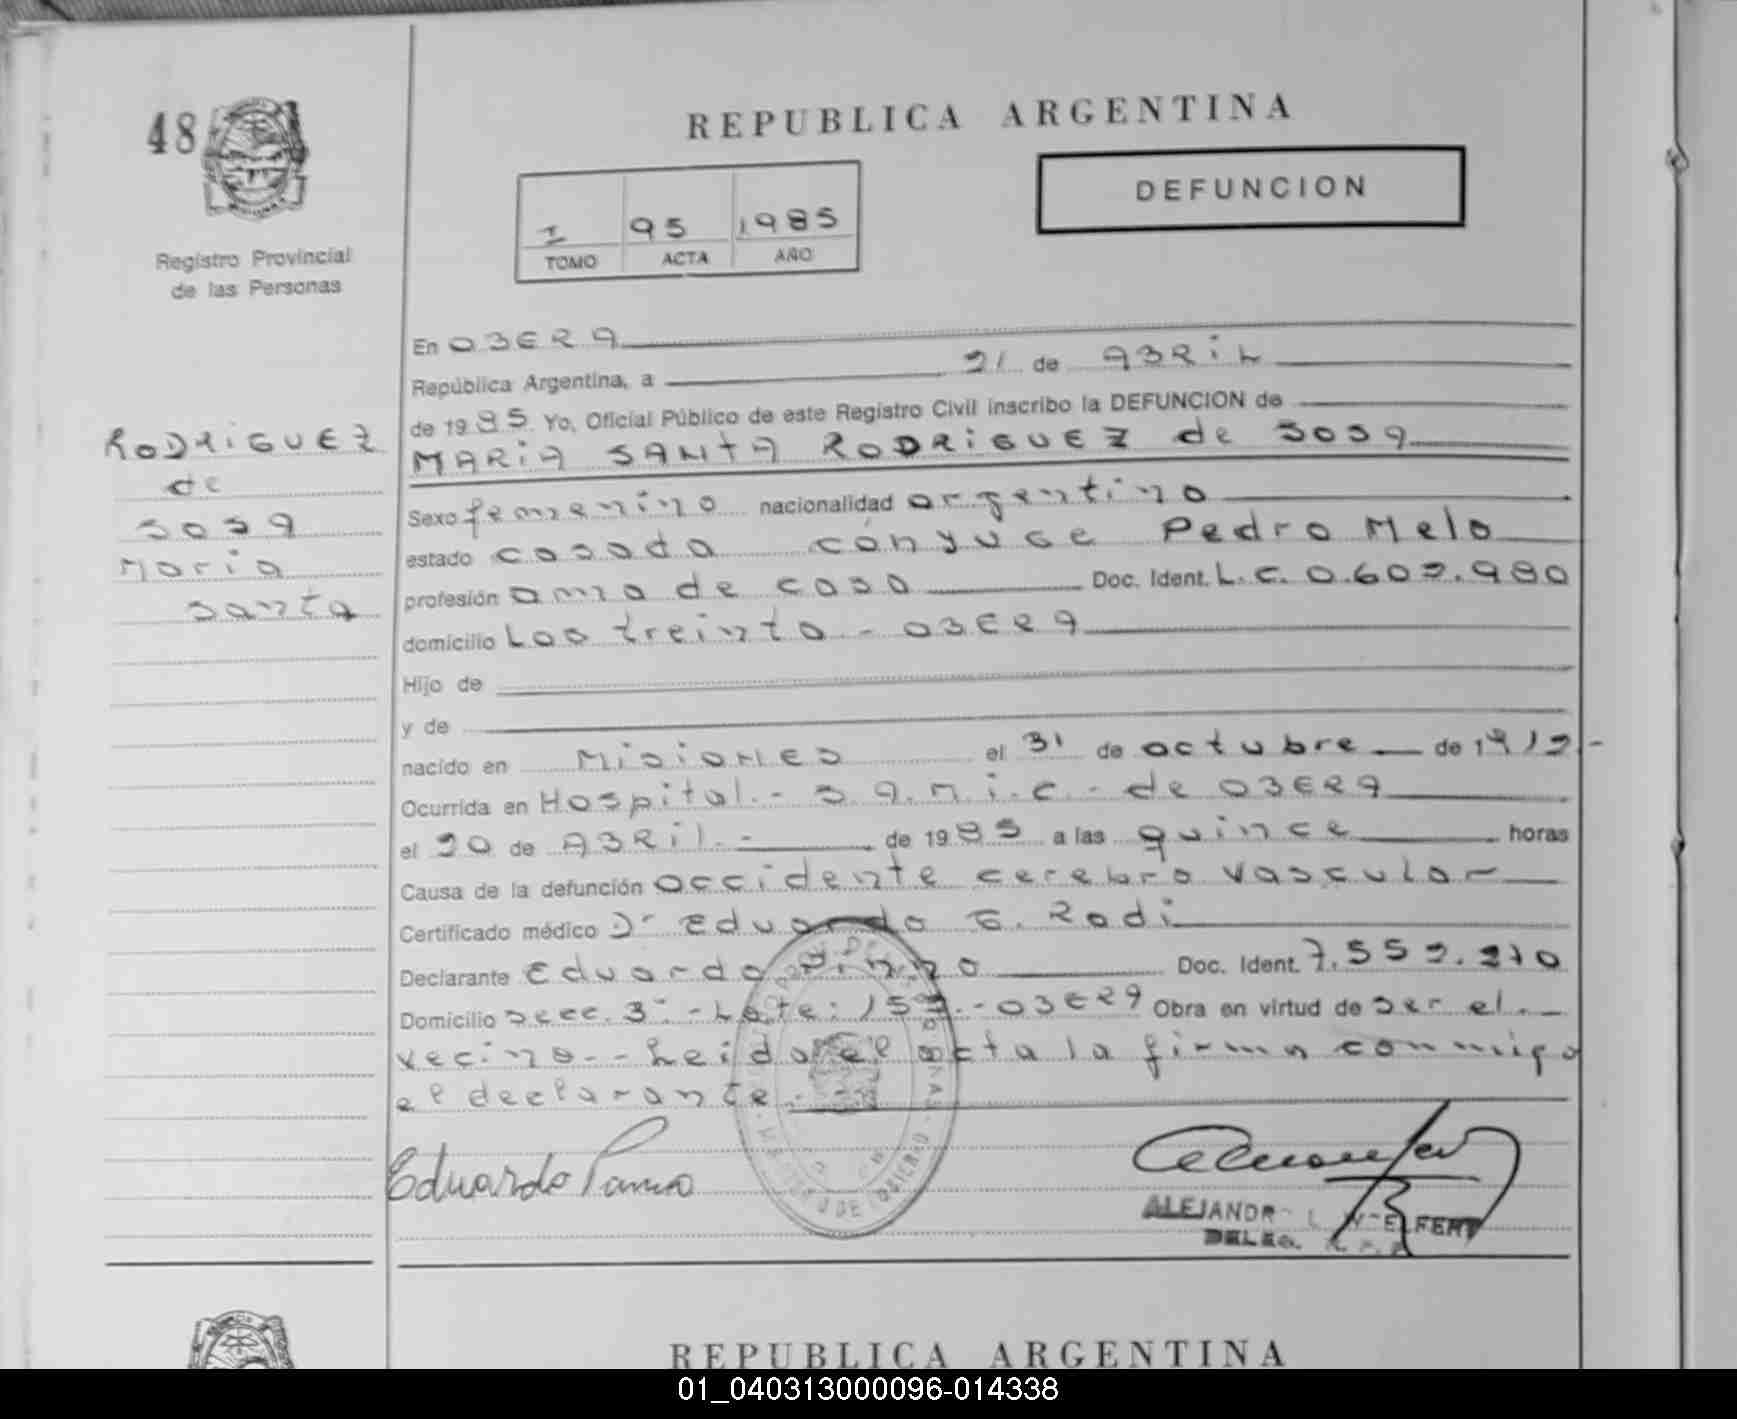 48
Registro Provincial
de las Personas
REPUBLICA ARGENTINA
DEFUNCION
I 95 1985
TOMO ACTA AÑO
En OBERA
República Argentina, a 21 de ABRIL
de 1985 Yo, Oficial Público de este Registro Civil inscribo la DEFUNCION de
MARIA SANTA RODRIGUEZ de SOSA
RODRIGUEZ
de
SOSA
Maria
Santa
Sexo femenino nacionalidad argentino
estado casada cónyuge Pedro Melo
profesión ama de casa Doc. Ident. L.C. 0.602.980
domicilio Los treinta - OBERA
Hijo de
y de
nacido en Misiones el 31 de octubre de 1912-
Ocurrida en Hospital - S.A.M.i.C. - de OBERA
el 20 de ABRil.- de 1985 a las quince horas
Causa de la defunción accidente cerebro vascular
Certificado médico Dr Eduardo G. Rodi
Declarante Eduardo Doc. Ident. 7.552.210
Domicilio Secc. 3ª - Lote: - OBERA Obra en virtud de ser el.-
vecino.- Leida el acta la firma conmigo
el declarante.-
Eduardo
ALEJANDR
DELEG.
REPUBLICA ARGENTINA
01_040313000096-014338